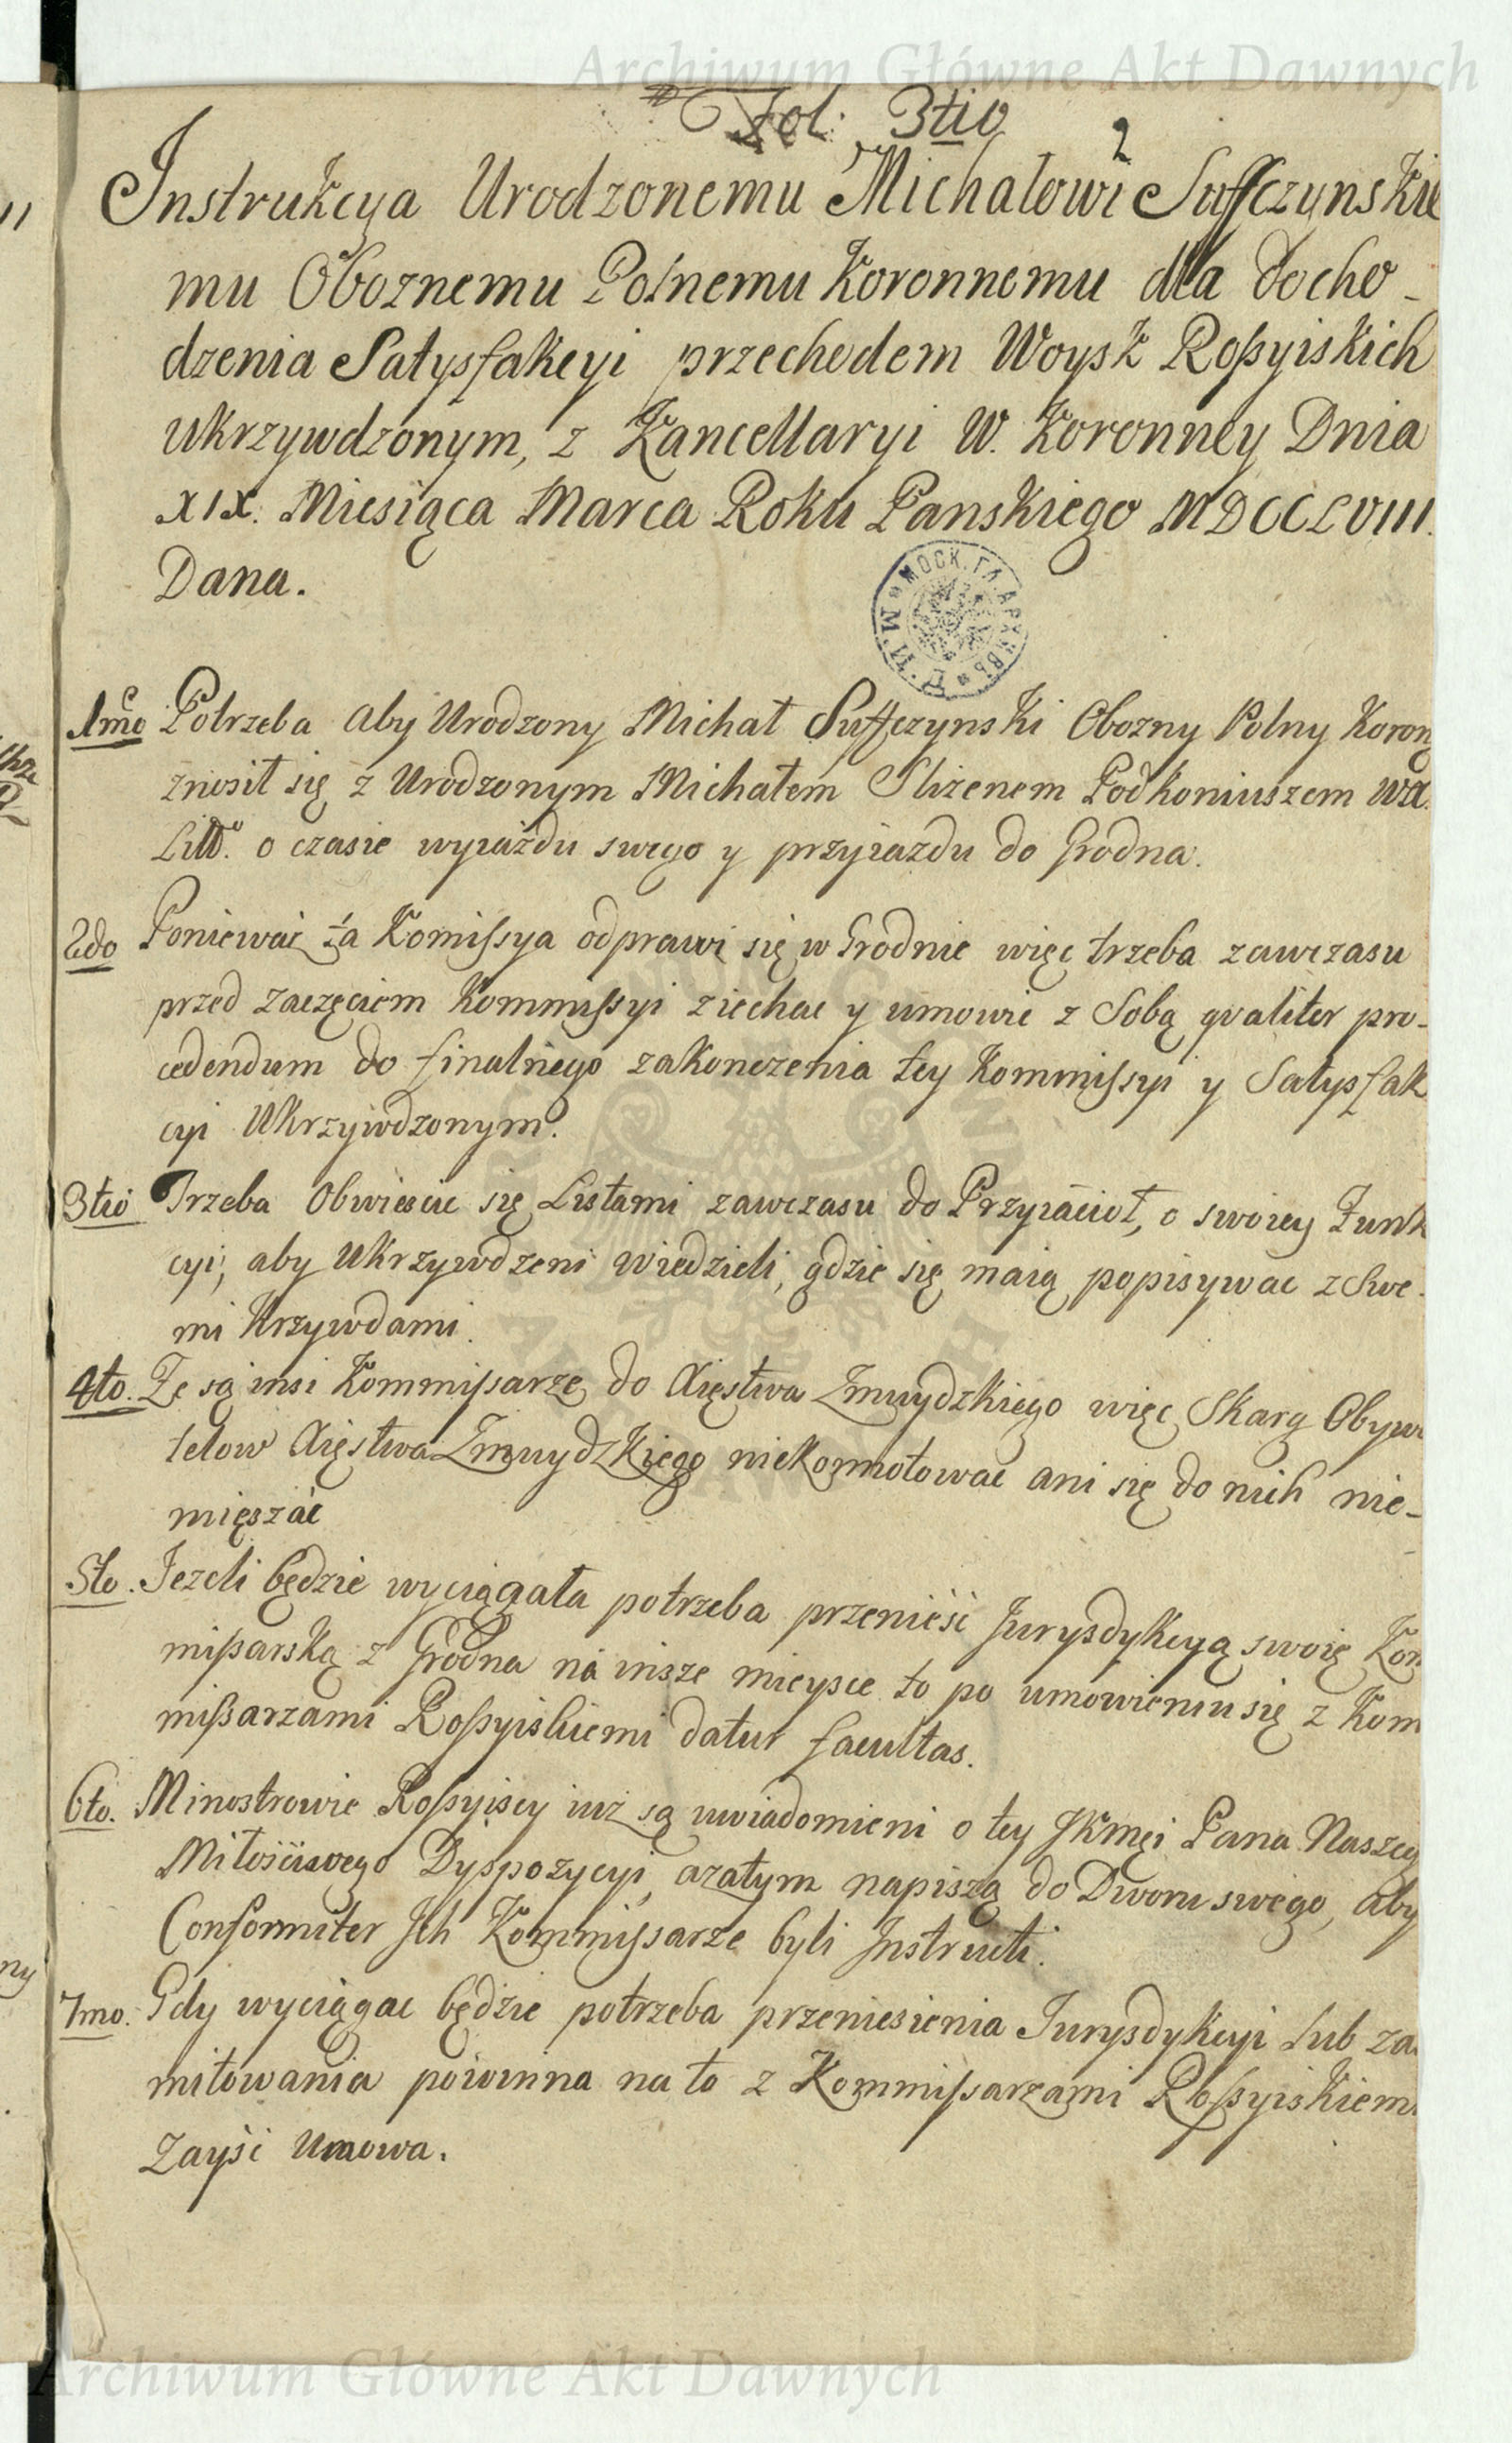 Archiwum Główne Akt Dawnych
Fol: 3tio
2
Instrukcya Urodzonemu Michałowi Suffczynskie
mu Oboznemu Polnemu Koronnemu dla docho-
dzenia Satysfakcyi przechodem Woysk Roßyiskich
ukrzywdzonym, z Kancellaryi W. Koronney Dnia
XIX. Miesiąca Marca Roku Panskiego MDCCLVIII.
Dana.
МОСК. ГЛ. АРХИВЪ М. И. Д.
1mo Potrzeba aby Urodzony Michał Suffczynski Obozny Polny Koron
znosił się z Urodzonym Michałem Slizenem Podkoniuszem
Litt. o czasie wyiazdu swego y przyiazdu do Grodna.
2do Poniewaz ta Komissya odprawi się w Grodnie więc trzeba zawczasu
przed zaczęciem Kommissyi ziechac y umowic z Sobą qualiter pro-
cedendum do finalnego zakonczenia tey Kommissyi y Satysfak
cyi Ukrzywdzonym.
3tio Trzeba Obwiescic się Listami zawczasu do Przyiacioł, o swoiey Funk
cyi, aby Ukrzywdzeni wiedzieli, gdzie się maią popisywac z Swe-
mi Krzywdami.
4to. Ze są insi Kommissarze do Xięstwa Zmuydzkiego więc Skarg Obywa
telow Xięstwa Zmuydzkiego niekonnotowac ani się do nich nie-
mięszać
5to. Iezeli będzie wyciągała potrzeba przenieść Jurysdykcyą swoię Kom
mißarską z Grodna na insze mieysce to po umowieniu się z Kom
mißarzami Roßyiskiemi datur facultas.
6to. Ministrowie Roßyiscy iuż są uwiadomieni o tey JKmęi Pana Naszeg
Miłościwego Dyspozycyi, azatym napiszą do Dworu swego, aby
Conformiter Jch Kommissarze byli Instructi.
7mo. Gdy wyciągac będzie potrzeba przeniesienia Jurysdykcyi lub za
mitowania powinna na to z Kommissarzami Roßyiskiem
Zayść Umowa.
Archiwum Główne Akt Dawnych